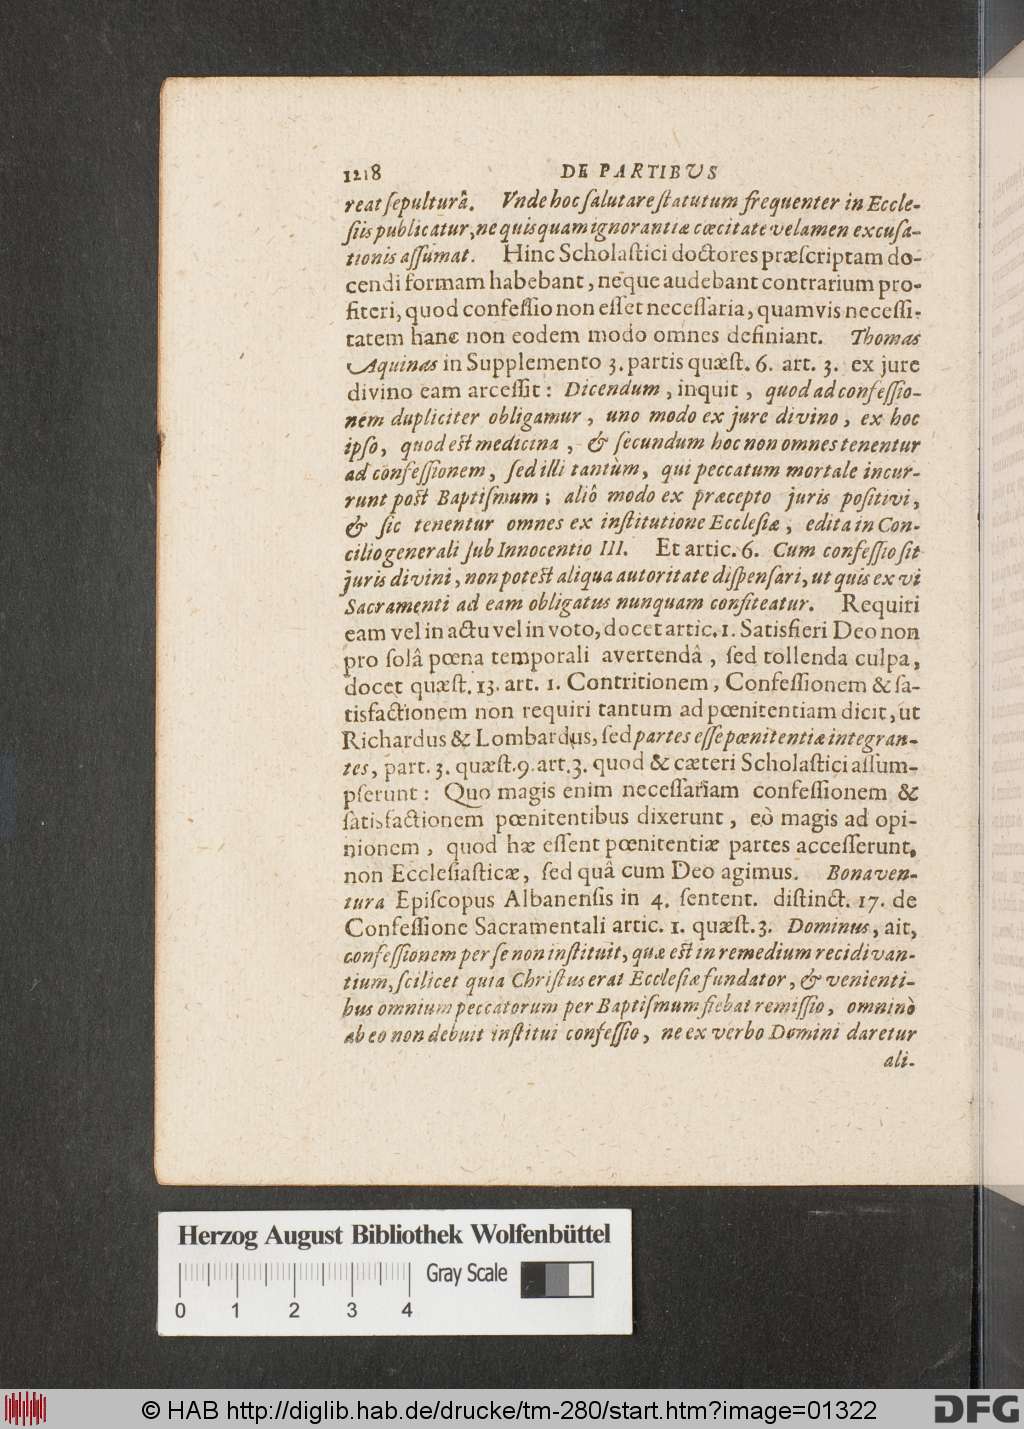 1218 DE PARTIBUS
reat ſepulturâ. Vnde hoc ſalutare ſtatutum frequenter in Eccle-
ſiis publicatur, ne quisquam ignorantiæ cœcitate velamen excuſa-
tionis aſſumat. Hinc Scholaſtici doctores præſcriptam do-
cendi formam habebant, neque audebant contrarium pro-
fiteri, quod confeſſio non eſſet neceſſaria, quamvis neceſſi-
tatem hanc non eodem modo omnes definiant. Thomas
Aquinas in Supplemento 3. partis quæſt. 6. art. 3. ex jure
divino eam arceſſit: Dicendum, inquit, quod ad confeſſio-
nem dupliciter obligamur, uno modo ex jure divino, ex hoc
ipſo, quod eſt medicina, & ſecundum hoc non omnes tenentur
ad confeſſionem, ſed illi tantùm, qui peccatum mortale incur-
runt poſt Baptiſmum; aliô modo ex præcepto juris poſitivi,
& ſic tenentur omnes ex inſtitutione Ecclesiæ, edita in Con-
cilio generali ſub Innocentio III. Et artic. 6. Cum confeſſio ſit
juris divini, non poteſt aliqua autoritate diſpenſari, ut quis ex vi
Sacramenti ad eam obligatus nunquam confiteatur. Requiri
eam vel in actu vel in voto, docet artic. 1. Satisfieri Deo non
pro ſolâ pœna temporali avertendâ, ſed tollenda culpa,
docet quæſt. 13. art. 1. Contritionem, Confeſſionem & ſa-
tisfactionem non requiri tantum ad pœnitentiam dicit, ut
Richardus & Lombardus, ſed partes eſſe pœnitentiæ integran-
tes, part. 3. quæſt. 9. art. 3. quod & cæteri Scholaſtici aſſum-
pſerunt: Quo magis enim neceſſariam confeſſionem &
ſatisfactionem pœnitentibus dixerunt, eò magis ad opi-
nionem, quod hæ eſſent pœnitentiæ partes acceſſerunt,
non Eccleſiaſticæ, ſed quâ cum Deo agimus. Bonaven-
tura Epiſcopus Albanenſis in 4. ſentent. diſtinct. 17. de
Confeſſione Sacramentali artic. 1. quæſt. 3. Dominus, ait,
confeſſionem per ſe non inſtituit, quæ eſt in remedium recidivan-
tium, ſcilicet quia Chriſtus erat Eccleſiæ fundator, & venienti-
bus omnium peccatorum per Baptiſmum fiebat remiſſio, omninò
ab eo non debuit inſtitui confeſſio, ne ex verbo Domini daretur
ali-
Herzog August Bibliothek Wolfenbüttel
Gray Scale
0 1 2 3 4
© HAB http://diglib.hab.de/drucke/tm-280/start.htm?image=01322
DFG